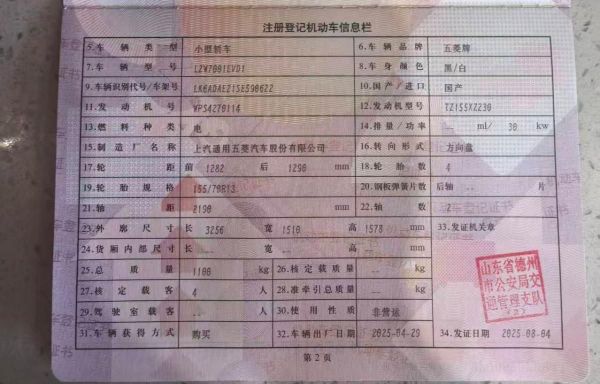 注册登记机动车信息栏
5.车辆类型 小型轿车 6.车辆品牌 五菱牌
7.车辆型号 LZW7001EVD1 8.车身颜色 黑/白
9.车辆识别代号/车架号 LK6ADAE21SE598622 10.国产/进口 国产
11.发动机号 WPS4270114 12.发动机型号 TZ155XZ230
13.燃料种类 电 14.排量/功率 -- ml/ 30 kw
15.制造厂名称 上汽通用五菱汽车股份有限公司 16.转向形式 方向盘
17.轮距 前 1282 后 1290 mm 18.轮胎数 4
19.轮胎规格 155/70R13 20.钢板弹簧片数 后轴 -- 片
21.轴距 2190 mm 22.轴数 2
23.外廓尺寸 长 3256 宽 1510 高 1578 mm 33.发证机关章
24.货厢内部尺寸 长 -- 宽 -- 高 -- mm
25.总质量 1100 kg 26.核定载质量 -- kg
27.核定载客 4 人 28.准牵引总质量 -- kg
29.驾驶室载客 -- 人 30.使用性质 非营运
31.车辆获得方式 购买 32.车辆出厂日期 2025-04-29 34.发证日期 2025-08-04
山东省德州
市公安局交
通管理支队
(2)
第2页